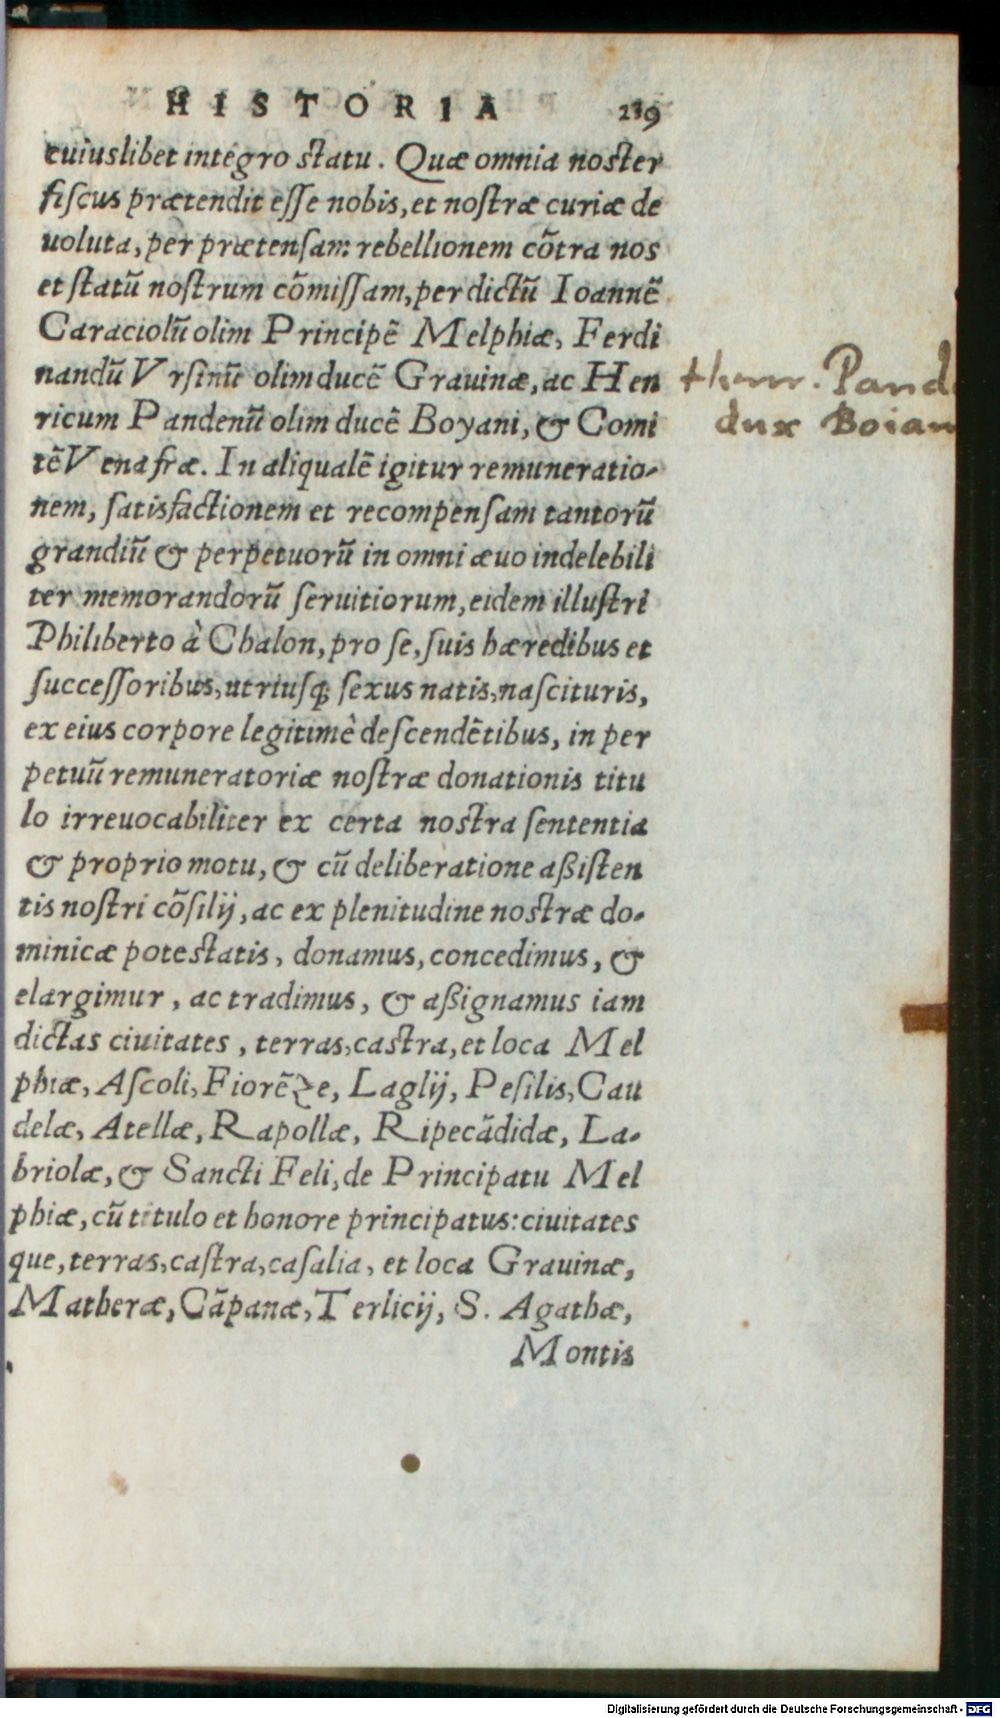 HISTORIA 219
cuiuslibet integro statu. Quæ omnia noster
fiſcus prætendit eſſe nobis, et noſtræ curiæ de
uoluta, per prætenſam rebellionem cōtra nos
et ſtatū noſtrum cōmiſſam, per dictū Ioannē
Caraciolū olim Principē Melphiæ, Ferdi
nandū Vrſinū olim ducē Grauinæ, ac Hen
ricum Pandenū olim ducē Boyani, & Comi
tē Venafræ. In aliqualē igitur remuneratio-
nem, ſatisfactionem et recompenſam tantorū
grandiū & perpetuorū in omni æuo indelebili
ter memorandorū ſeruitiorum, eidem illuſtri
Philiberto à Chalon, pro ſe, ſuis hæredibus et
ſucceſſoribus, utriuſq; ſexus natis, naſcituris,
ex eius corpore legitimè deſcendētibus, in per
petuū remuneratoriæ noſtræ donationis titu
lo irreuocabiliter ex certa nostra ſententia
& proprio motu, & cū deliberatione aßiſten
tis noſtri cōſilij, ac ex plenitudine nostræ do-
minicæ potestatis, donamus, concedimus, &
elargimur, ac tradimus, & aßignamus iam
dictas ciuitates, terras, caſtra, et loca Mel
phiæ, Aſcoli, Fiorēze, Laglij, Peſilis, Cau
delæ, Atellæ, Rapollæ, Ripecādidæ, La-
briolæ, & Sancti Feli, de Principatu Mel
phiæ, cū titulo et honore principatus: ciuitates
que, terras, caſtra, caſalia, et loca Grauinæ,
Matheræ, Cāpanæ, Terlicij, S. Agathæ,
Montis
Henr. Pand
dux Boian
Digitalisierung gefördert durch die Deutsche Forschungsgemeinschaft - DFG